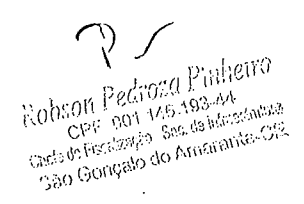 Robson Pedroza Pinheiro
CPF 001 145.193-44
Chefe de Fiscalização Sec. de Infraestrutura
São Gonçalo do Amarante-CE